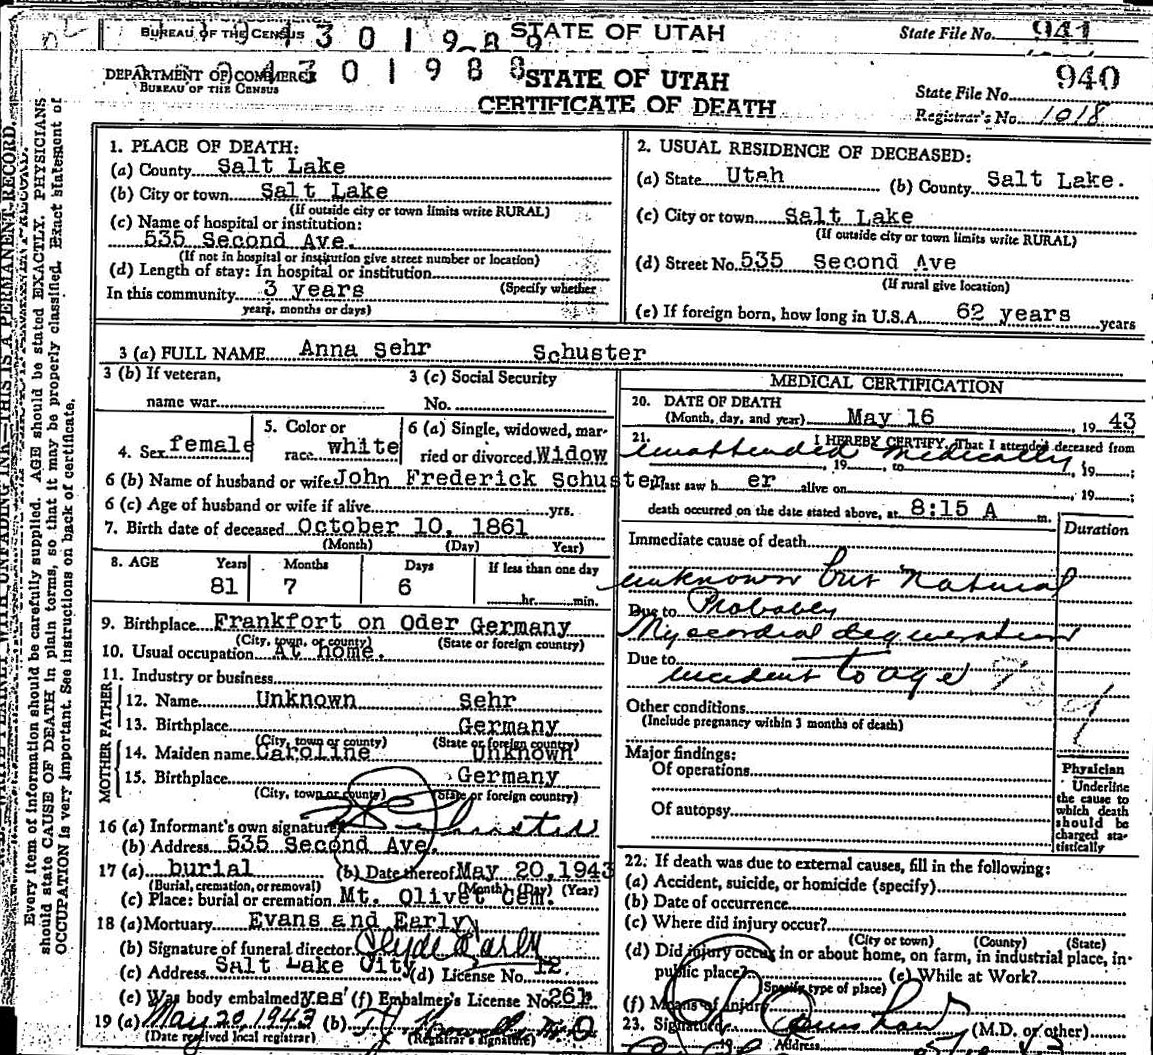 BUREAU OF THE CENSUS STATE OF UTAH State File No. 941
DEPARTMENT OF COMMERCE 4 3 0 1 9 8 8 STATE OF UTAH 940
BUREAU OF THE CENSUS CERTIFICATE OF DEATH State File No.
Registrar's No. 1018
Every item of information should be carefully supplied. AGE should be stated EXACTLY. PHYSICIANS
should state CAUSE OF DEATH in plain terms, so that it may be properly classified. Exact statement of
OCCUPATION is very important. See instructions on back of certificate.
1. PLACE OF DEATH:
(a) County Salt Lake
(b) City or town Salt Lake
(If outside city or town limits write RURAL)
(c) Name of hospital or institution:
535 Second Ave.
(If not in hospital or institution give street number or location)
(d) Length of stay: In hospital or institution
(Specify whether
In this community 3 years
years, months or days)
2. USUAL RESIDENCE OF DECEASED:
(a) State Utah (b) County Salt Lake.
(c) City or town Salt Lake
(If outside city or town limits write RURAL)
(d) Street No. 535 Second Ave
(If rural give location)
(e) If foreign born, how long in U.S.A. 62 years years
3 (a) FULL NAME Anna Sehr Schuster
3 (b) If veteran, 3 (c) Social Security
name war No.
4. Sex female 5. Color or race white 6 (a) Single, widowed, married or divorced Widow
6 (b) Name of husband or wife John Frederick Schuster
6 (c) Age of husband or wife if alive yrs.
7. Birth date of deceased October 10, 1861
(Month) (Day) Year)
8. AGE Years Months Days If less than one day
81 7 6 hr. min.
9. Birthplace Frankfort on Oder Germany
(City, town, or county) (State or foreign country)
10. Usual occupation At home.
11. Industry or business
FATHER
12. Name Unknown Sehr
13. Birthplace Germany
(City, town or county) (State or foreign country)
MOTHER
14. Maiden name Caroline Unknown
15. Birthplace Germany
(City, town or county) (State or foreign country)
16 (a) Informant's own signature
(b) Address 535 Second Ave.
17 (a) burial (b) Date thereof May 20, 1943
(Burial, cremation, or removal) (Month) (Day) (Year)
(c) Place: burial or cremation Mt. Olivet Cem.
18 (a) Mortuary Evans and Early
(b) Signature of funeral director Clyde Early
(c) Address Salt Lake City (d) License No. 12.
(e) Was body embalmed yes (f) Embalmer's License No. 261
19 (a) May 20, 1943 (b)
(Date received local registrar) (Registrar's signature)
MEDICAL CERTIFICATION
20. DATE OF DEATH
(Month, day, and year) May 16 19 43
21. I HEREBY CERTIFY, That I attended deceased from
unattended medically
, 19 , to , 19 ;
I last saw h er alive on , 19 ;
death occurred on the date stated above, at 8:15 A m.
Duration
Immediate cause of death
unknown but Natural
Due to Probably
Myocordial degeneration
Due to
incident to age
Other conditions
(Include pregnancy within 3 months of death)
Major findings:
Of operations
Of autopsy
Physician
Underline
the cause to
which death
should be
charged sta-
tistically
22. If death was due to external causes, fill in the following:
(a) Accident, suicide, or homicide (specify)
(b) Date of occurrence
(c) Where did injury occur?
(City or town) (County) (State)
(d) Did injury occur in or about home, on farm, in industrial place, in-
public place? (e) While at Work?
(Specify type of place)
(f) Means of injury
23. Signature (M.D. or other)
Address